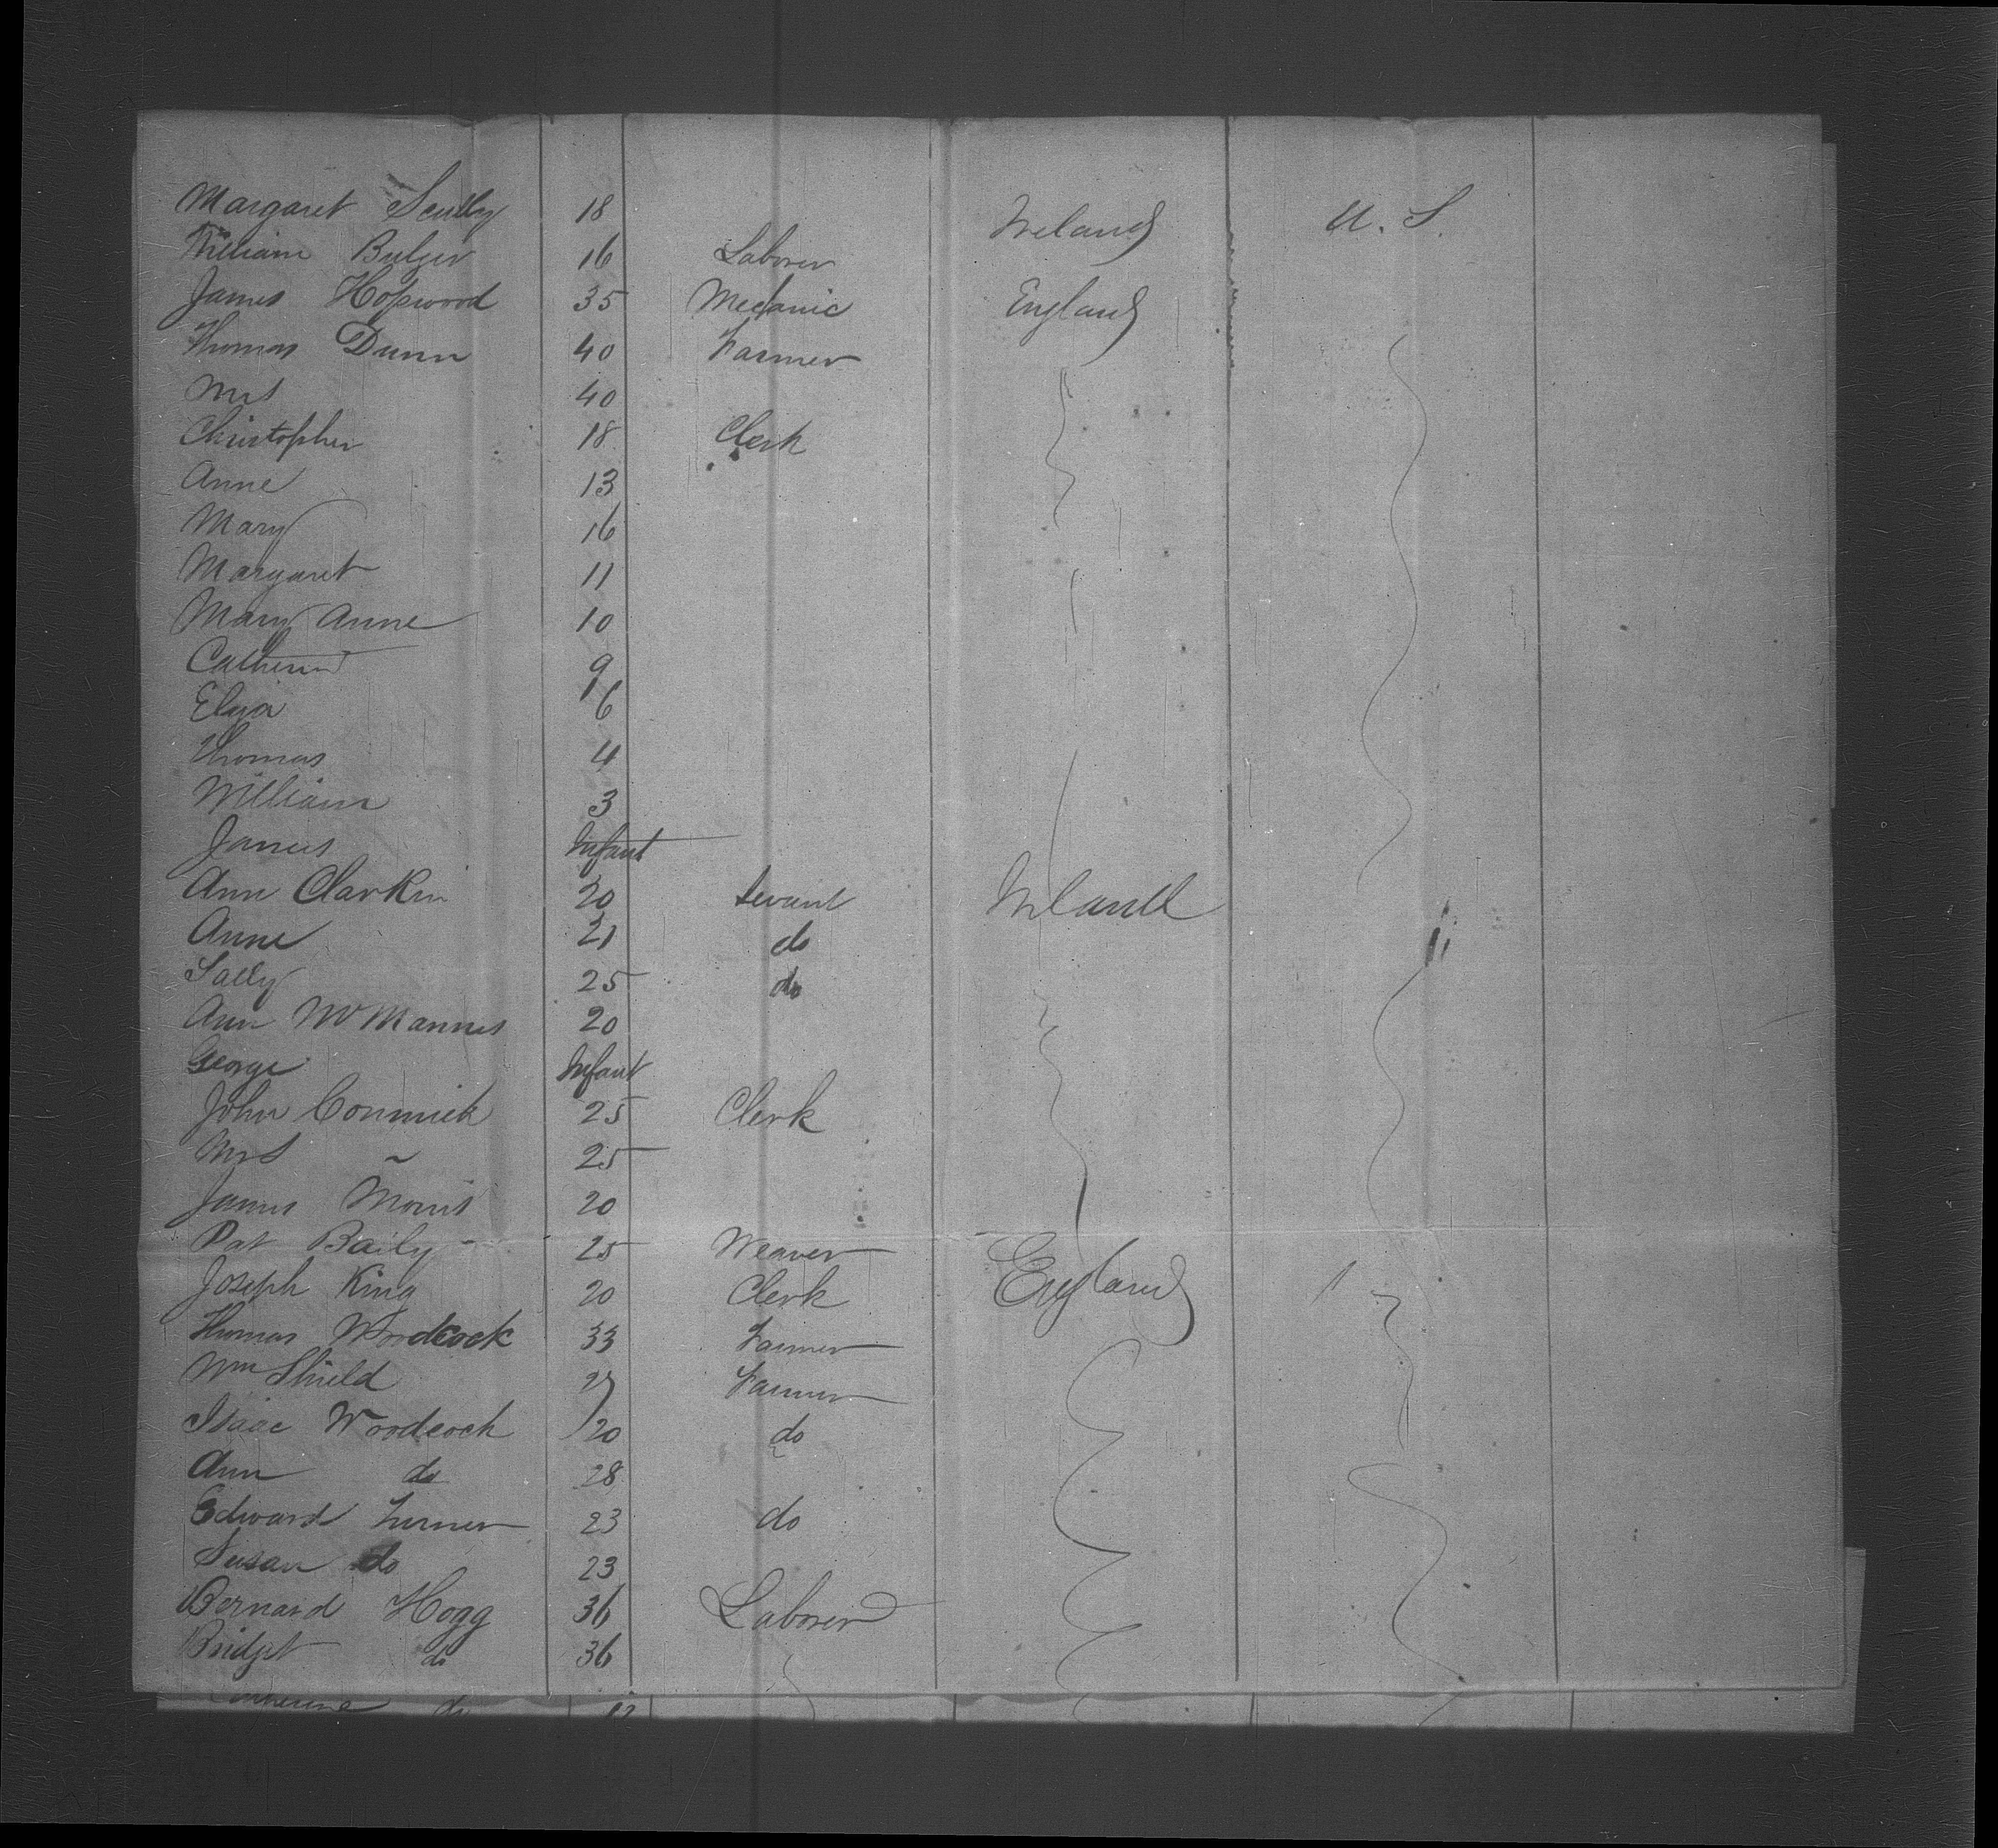 Margaret Scully 18 Ireland U. S.
William Bulger 16 Laborer
James Hopwood 35 Mechanic England
Thomas Dunn 40 Farmer
Mrs 40
Christopher 18 Clerk
Anne 13
Mary 16
Margaret 11
Mary Anne 10
Catherine 9
Eliza 6
Thomas 4
William 3
James Infant
Ann Clarkin 20 Servant Ireland
Anne 21 do
Sally 25 do
Ann McMannus 20
George Infant
John Cormick 25 Clerk
Mrs 25
James Morris 20
Pat Baily 25 Weaver
Joseph King 20 Clerk England
Thomas Woodcock 33 Farmer
Wm Shield 27 Farmer
Isaac Woodcock 20 do
Ann do 28
Edward Turner 23 do
Susan do 23
Bernard Hogg 36 Laborer
Bridget do 36
Catherine do 12